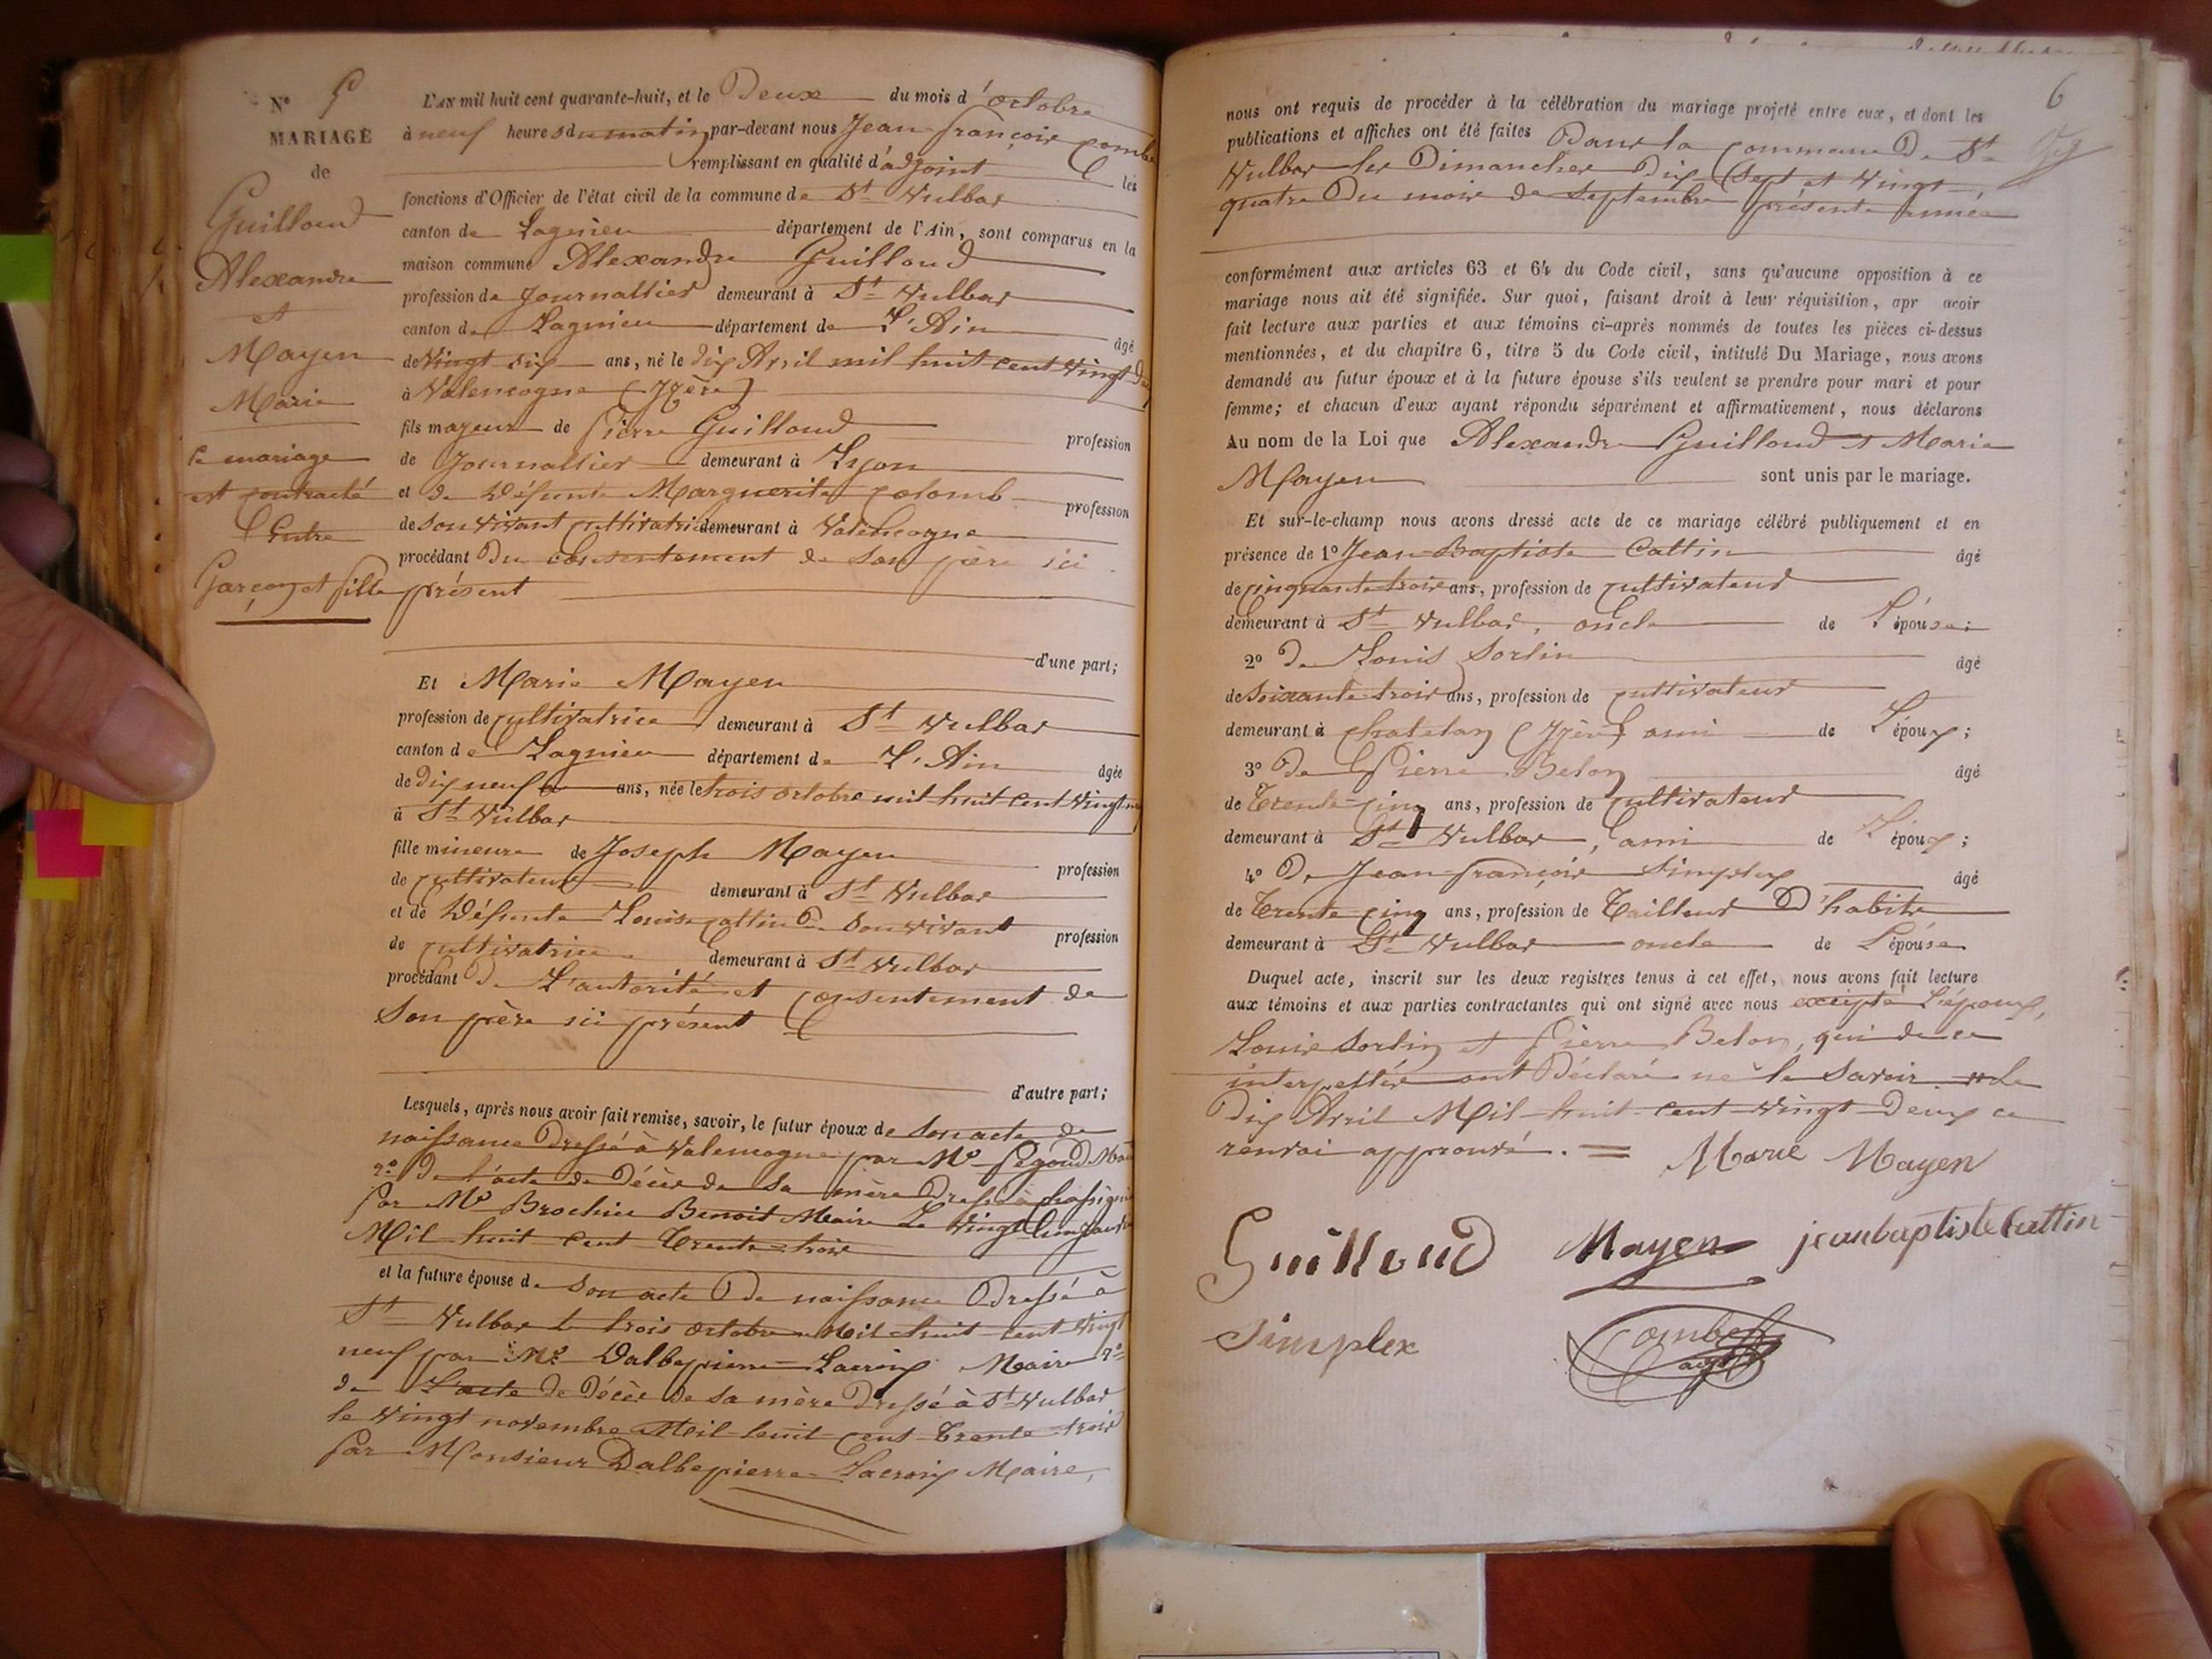 N° 5
MARIAGE
de
Guilloud
Alexandre
et
Mayen
Marie
ce mariage
est contracté
Entre
Garçon et fille
L'AN mil huit cent quarante-huit, et le Deux du mois d'octobre
à neuf heures du matin par-devant nous Jean françois Combe
remplissant en qualité d'adjoint les
fonctions d'Officier de l'état civil de la commune de St Vulbas
canton de Lagnieu département de l'Ain, sont comparus en la
maison commune Alexandre Guilloud
profession de Journallier demeurant à St Vulbas
canton de Lagnieu département de L'Ain âgé
de Vingt six ans, né le dix Avril mil huit cent Vingt
à Valencogne (Yzère)
fils mayeur de Pierre Guilloud profession
de Journallier demeurant à Lyon
et de Défunte Marguerite Colomb profession
de son vivant cultivatrice demeurant à Valencogne
procédant Du Consentement de son père ici
présent
d'une part;
Et Marie Mayen
profession de cultivatrice demeurant à St Vulbas
canton de Lagnieu département de L'Ain âgée
de dix neuf ans, née le trois octobre mil huit cent Vingt
à St Vulbas
fille mineure de Joseph Mayen profession
de cultivateur demeurant à St Vulbas
et de Défunte Louise Cattin de son vivant profession
de cultivatrice demeurant à St Vulbas
procédant de L'autorité et Consentement de
son père ici présent
d'autre part;
Lesquels, après nous avoir fait remise, savoir, le futur époux de son acte de
naissance Dressé à Valencogne par Mr
2° de l'acte de Décès de sa mère Dressé à
par Mr Brochier Benoit Maire Le Vingt
Mil huit cent Trente trois
et la future épouse de son acte De naissance Dressé à
St Vulbas le trois octobre Mil huit cent Vingt
neuf par Mr Dalbepierre Lacroix Maire 2°
de L'acte de Décès de sa mère Dressé à St Vulbas
le Vingt novembre Mil huit cent Trente trois
par Monsieur Dalbepierre Lacroix Maire,
6
nous ont requis de procéder à la célébration du mariage projeté entre eux, et dont les
publications et affiches ont été faites Dans la commune De St
Vulbas les Dimanches Dix Sept et Vingt
quatre Du mois de Septembre présente année
conformément aux articles 63 et 64 du Code civil, sans qu'aucune opposition à ce
mariage nous ait été signifiée. Sur quoi, faisant droit à leur réquisition, apr avoir
fait lecture aux parties et aux témoins ci-après nommés de toutes les pièces ci-dessus
mentionnées, et du chapitre 6, titre 5 du Code civil, intitulé Du Mariage, nous avons
demandé au futur époux et à la future épouse s'ils veulent se prendre pour mari et pour
femme; et chacun d'eux ayant répondu séparément et affirmativement, nous déclarons
Au nom de la Loi que Alexandre Guilloud et Marie
Mayen sont unis par le mariage.
Et sur-le-champ nous avons dressé acte de ce mariage célébré publiquement et en
présence de 1° Jean Baptiste Cattin âgé
de cinquante trois ans, profession de cultivateur
demeurant à St Vulbas, oncle de L'épouse;
2° de Louis Sorlin âgé
de soixante trois ans, profession de cultivateur
demeurant à chatelan (Yzère) ami de L'époux;
3° De Pierre Belon âgé
de Trente cinq ans, profession de cultivateur
demeurant à St Vulbas, ami de L'époux;
4° De Jean françois Simplex âgé
de Trente cinq ans, profession de Tailleur D'habits
demeurant à St Vulbas oncle de L'épouse
Duquel acte, inscrit sur les deux registres tenus à cet effet, nous avons fait lecture
aux témoins et aux parties contractantes qui ont signé avec nous excepté L'époux,
Louis Sorlin et Pierre Belon, qui de ce
interpellés ont Déclaré ne le savoir. # Le
Dix Avril Mil huit cent Vingt Deux ce
renvoi approuvé. =
Marie Mayen
Guilloud Mayen jeanbaptiste Cattin
Simplex Combe